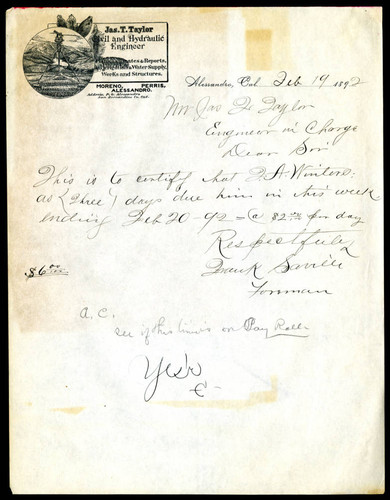 Jas. T. Taylor
Civil and Hydraulic
Engineer
Estimates & Reports,
Water Supply,
Works and Structures.
MORENO, PERRIS,
ALESSANDRO.
Address, P. O. Alessandro
San Bernardino Co. Cal.
Alessandro, Cal Feb 19 1892
Mr Jas T. Taylor
Engineer in Charge
Dear Sir
This is to certify that F. A. Winters
as (three) days due him in this week
ending Feb 20-92 = @ $2.00 per day
Respectfully
$6.00
Frank Saville
Forman
A. C.
see if this time is on Pay Roll
Yes
C